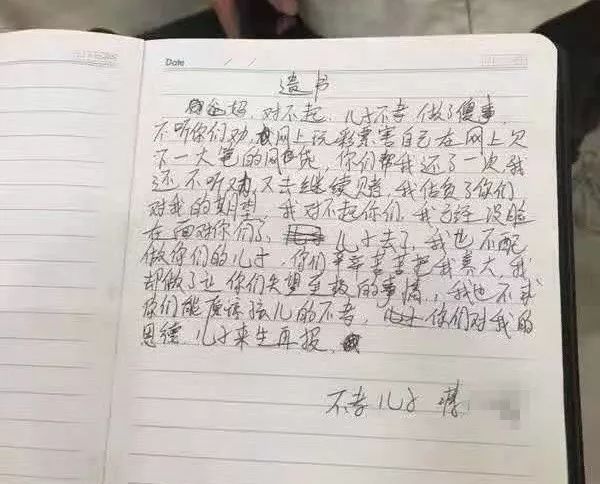 Date / /
遗书
爸妈，对不起，儿子不孝做了傻事，
不听你们劝，网上玩彩票害自己在网上欠
下一大笔的网贷，你们帮我还了一次，我
还不听劝，又去继续赌，我估负了你们
对我的期望，我对不起你们，我 没脸
在面对你们了，儿子去了，我也不配
做你们的儿子，你们辛辛苦苦把我养大，我
却做了让你们失望至极的事情，我也不求
你们能原谅孩儿的不孝，你们对我的
恩德 儿子来生再报，
不孝儿子